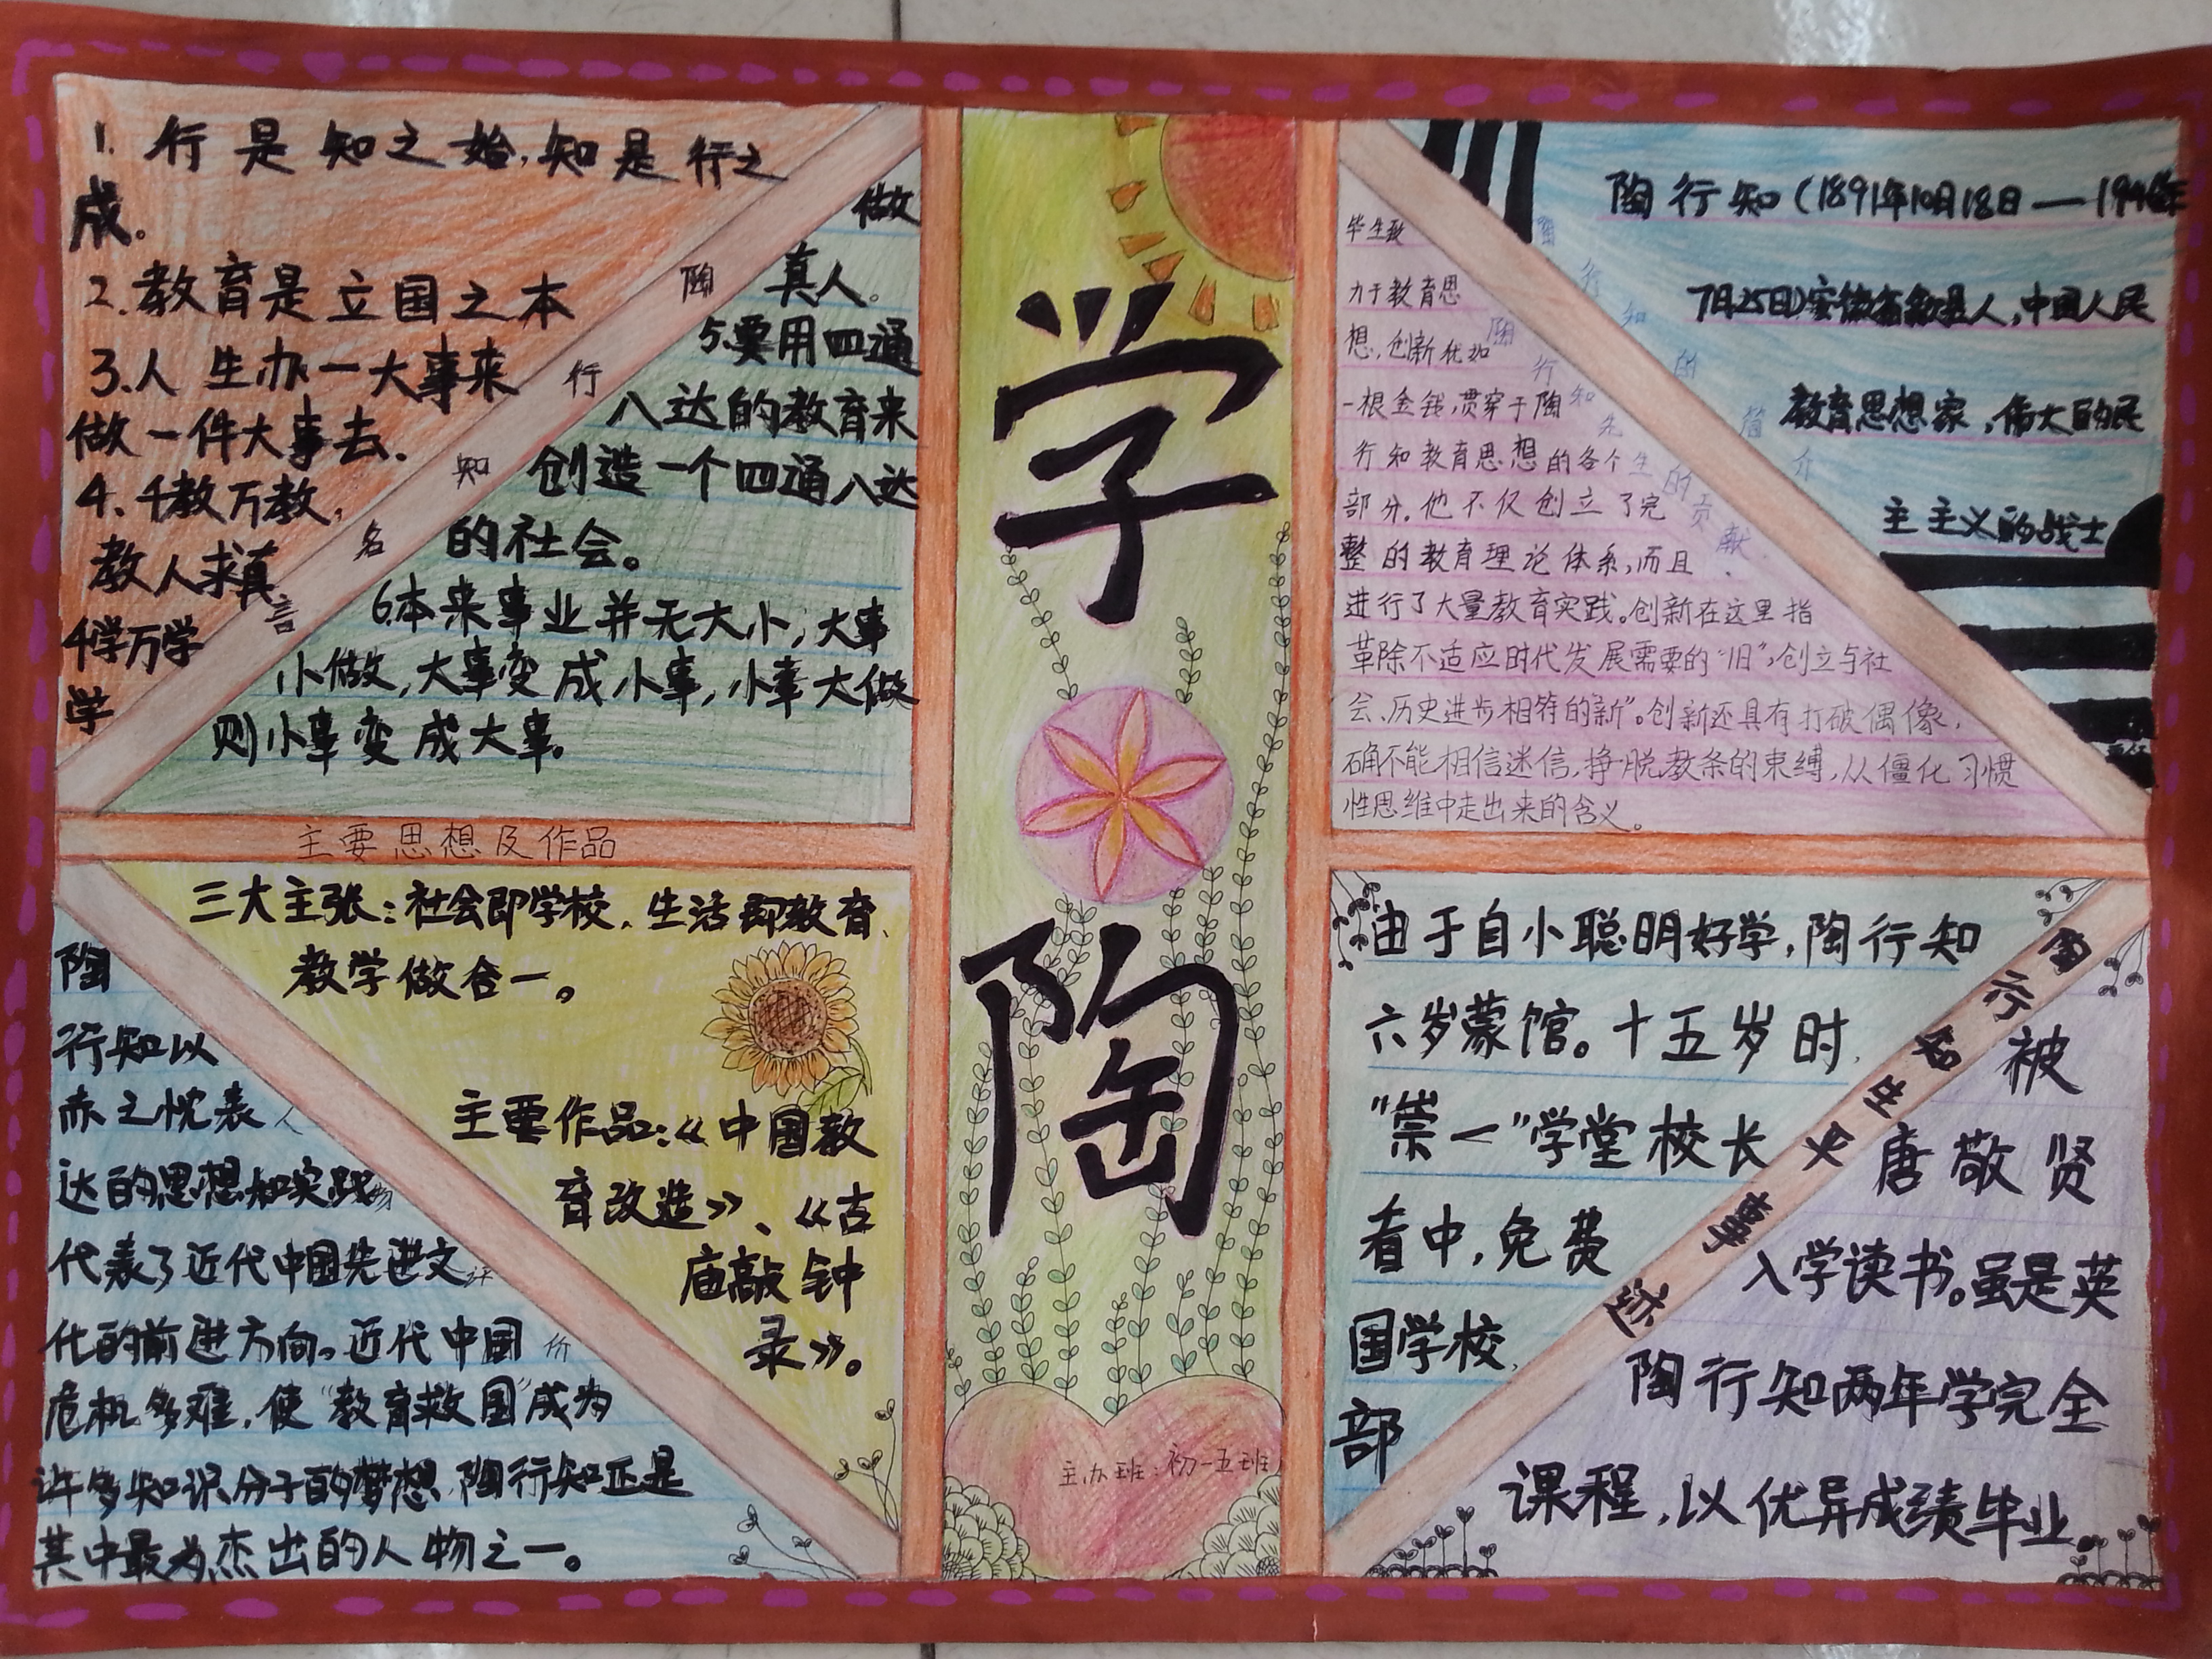 1. 行是知之始,知是行之
成。
2.教育是立国之本
3.人生办一大事来
做一件大事去.
4.千教万教,
教人求真
千学万学
学
做
真人。
5.要用四通
八达的教育来
创造一个四通八达
的社会。
6.本来事业并无大小,大事
小做,大事变成小事,小事大做
则小事变成大事.
陶行知名言
主要思想及作品
三大主张:社会即学校、生活即教育、
教学做合一。
主要作品:《中国教
育改造》、《古
庙敲钟
录》。
陶
行知以
赤之忱表
达的思想和实践
代表了近代中国先进文
化的前进方向。近代中国
危机多难,使“教育救国”成为
许多知识分子的梦想,陶行知正是
其中最为杰出的人物之一。
人物评价
学陶
主办班:初一五班
陶行知(1891年10月18日—1946年
7月25日)安徽省歙县人,中国人民
教育思想家,伟大的民
主主义的战士
陶行知的简介
陶行知先生的贡献
毕生致
力于教育思
想,创新犹如
一根金钱,贯穿于陶
行知教育思想的各个
部分.他不仅创立了完
整的教育理论体系,而且
进行了大量教育实践。创新在这里指
革除不适应时代发展需要的“旧”,创立与社
会、历史进步相符的新”。创新还具有打破偶像,
确不能相信迷信,挣脱教条的束缚,从僵化习惯
性思维中走出来的含义。
由于自小聪明好学,陶行知
六岁蒙馆。十五岁时,
“崇一”学堂校长
看中,免费
国学校,
部
陶行知生平事迹
被
唐敬贤
入学读书。虽是英
陶行知两年学完全
课程,以优异成绩毕业